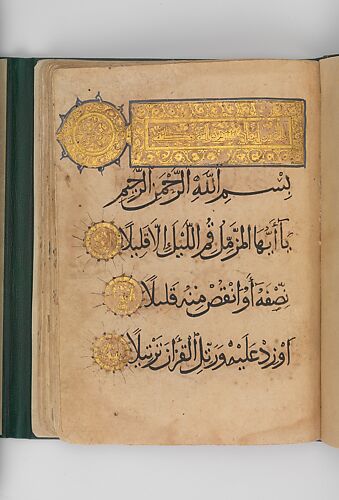 بِسْمِ اللَّهِ الرَّحْمَنِ الرَّحِيمِ
يَا أَيُّهَا الْمُزَّمِّلُ قُمِ اللَّيْلَ إِلَّا قَلِيلًا
نِصْفَهُ أَوِ انْقُصْ مِنْهُ قَلِيلًا
أَوْ زِدْ عَلَيْهِ وَرَتِّلِ الْقُرْآنَ تَرْتِيلًا